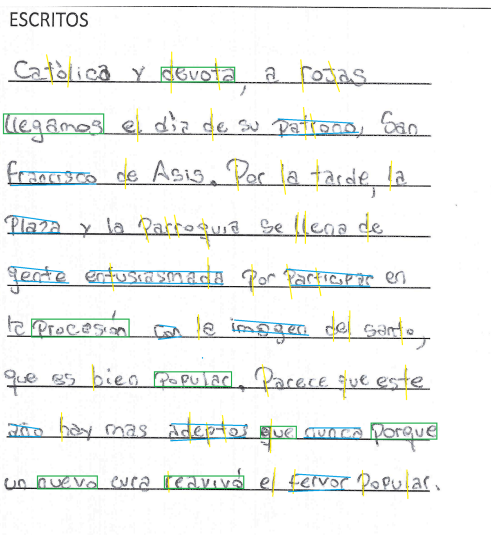 ESCRITOS
Católica y devota, a rojas
llegamos el día de su patrono, San
francisco de Asis. Por la tarde, la
plaza y la parroquia se llena de
gente entusiasmada por participar en
la procesión con la imagen del santo,
que es bien popular. Parece que este
año hay mas adeptos que nunca porque
un nuevo cura reavivó el fervor popular.